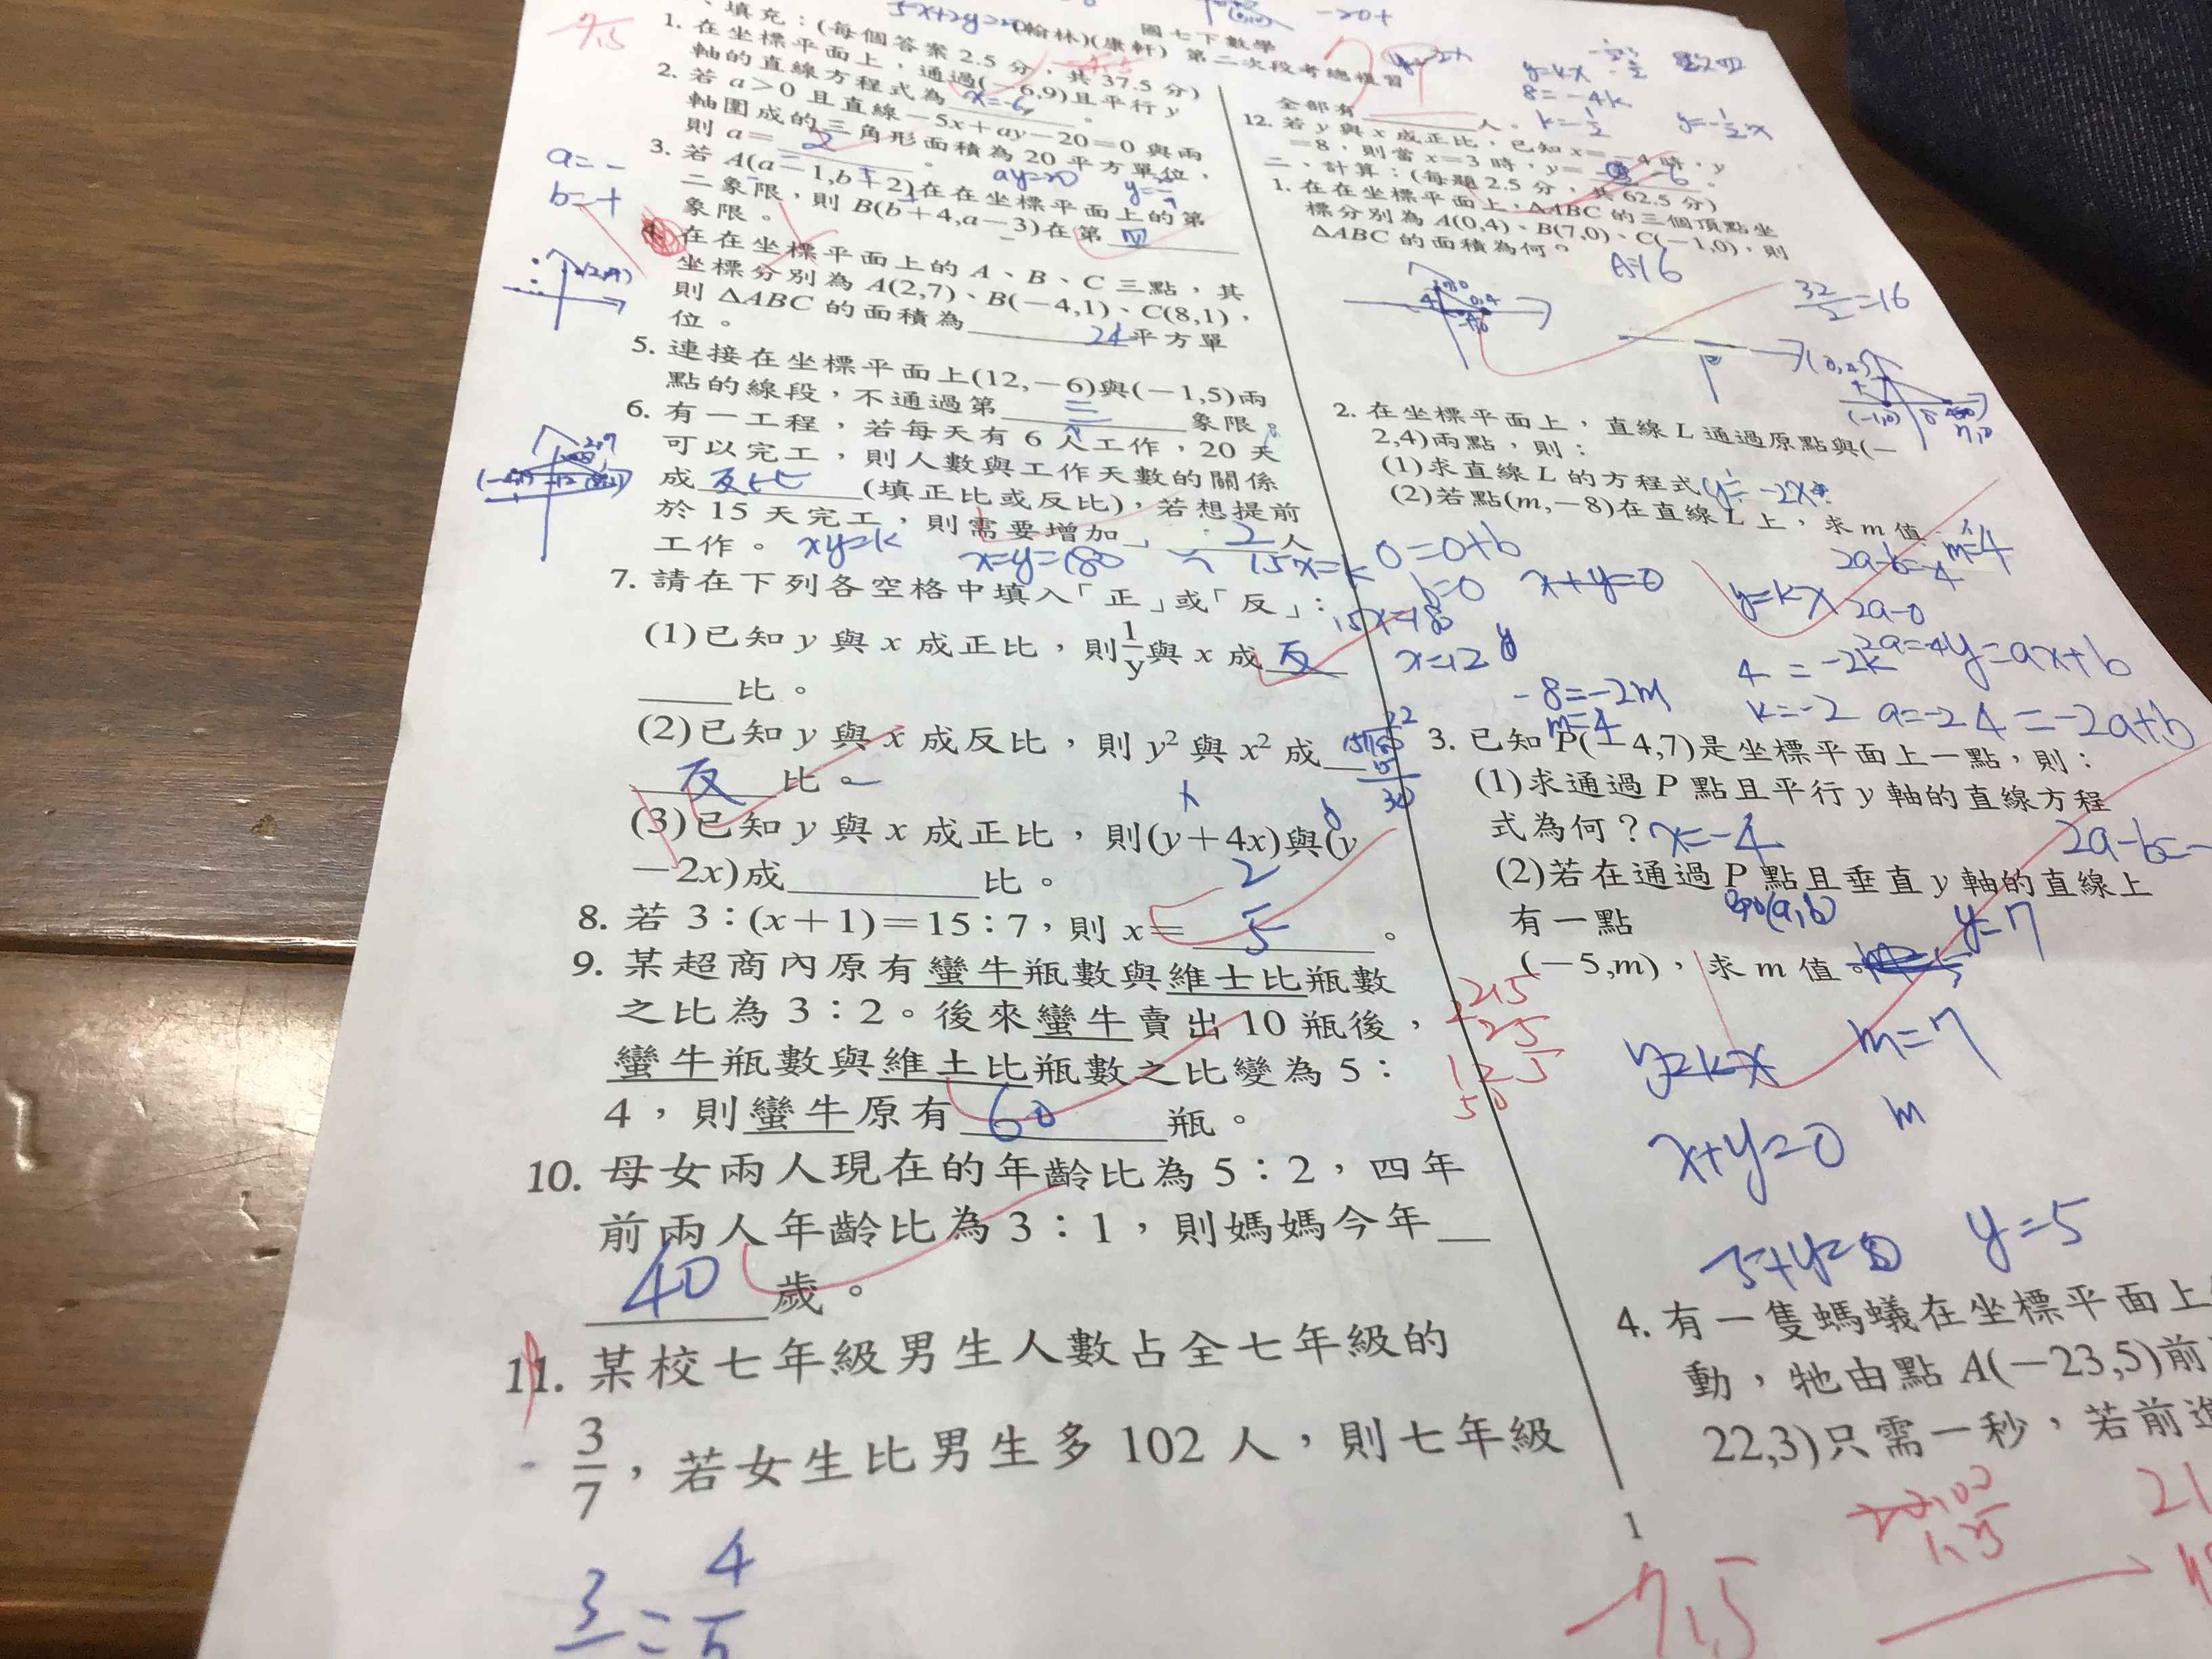 國七下數學
(翰林)(康軒) 第二次段考總複習
填充：(每個答案 2.5 分，共 37.5 分)
1. 在坐標平面上，通過(－6,9)且平行 y
軸的直線方程式為 x=-6 。
2. 若 a＞0 且直線－5x＋ay－20＝0 與兩
軸圍成的三角形面積為 20 平方單位，
則 a＝ 2 。
3. 若 A(a－1,b＋2)在在坐標平面上的第
二象限，則 B(b＋4,a－3)在第 四
象限。
a=-
b=+
4. 在在坐標平面上的 A、B、C 三點，其
坐標分別為 A(2,7)、B(－4,1)、C(8,1)，
則 ΔABC 的面積為 24 平方單
位。
5. 連接在坐標平面上(12,－6)與(－1,5)兩
點的線段，不通過第 三 象限。
6. 有一工程，若每天有 6 人工作，20 天
可以完工，則人數與工作天數的關係
成 反比 (填正比或反比)，若想提前
於 15 天完工，則需要增加 2 人
工作。 xy=k x=y=180 15x=k
15x=18
x=12
7. 請在下列各空格中填入「正」或「反」：
(1)已知 y 與 x 成正比，則 1/y 與 x 成 反
比。
(2)已知 y 與 x 成反比，則 y² 與 x² 成
反 比。
(3)已知 y 與 x 成正比，則(y＋4x)與(y
－2x)成 比。
8. 若 3：(x＋1)＝15：7，則 x＝ 2/5 。
9. 某超商內原有蠻牛瓶數與維士比瓶數
之比為 3：2。後來蠻牛賣出 10 瓶後，
蠻牛瓶數與維士比瓶數之比變為 5：
4，則蠻牛原有 60 瓶。
10. 母女兩人現在的年齡比為 5：2，四年
前兩人年齡比為 3：1，則媽媽今年
40 歲。
11. 某校七年級男生人數占全七年級的
3/7，若女生比男生多 102 人，則七年級
全部有 人。
12. 若 y 與 x 成正比，已知 x＝－4 時，y
＝8，則當 x＝3 時，y＝ -6 。
y=kx
8=-4k
二、計算：(每題 2.5 分，共 62.5 分)
1. 在在坐標平面上，ΔABC 的三個頂點坐
標分別為 A(0,4)、B(7,0)、C(－1,0)，則
ΔABC 的面積為何？
A=16
32/2=16
2. 在坐標平面上，直線 L 通過原點與(－
2,4)兩點，則：
(1)求直線 L 的方程式 y=-2x
(2)若點(m,－8)在直線 L 上，求 m 值 m=4
0=0+b
b=0
x+y=0
y=kx
2a-b=4
2a-0
2a=4
y=ax+b
4=-2k
k=-2
a=-2
4=-2a+b
-8=-2m
m=4
3. 已知 P(－4,7)是坐標平面上一點，則：
(1)求通過 P 點且平行 y 軸的直線方程
式為何？ x=-4
(2)若在通過 P 點且垂直 y 軸的直線上
有一點
(－5,m)，求 m 值。
y=7
m=7
y=kx
m
x+y=0
y=5
4. 有一隻螞蟻在坐標平面上
動，牠由點 A(－23,5)前
22,3)只需一秒，若前進
1